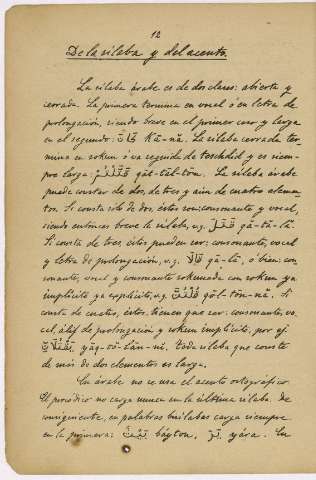 12
De la sílaba y del acento
La sílaba árabe es de dos clases: abierta y
cerrada. La primera termina en vocal ó en letra de
prolongación, siendo breve en el primer caso y larga
en el segundo: كَانَ Kā-nă. La sílaba cerrada ter-
mina en sokun ó va seguida de texhdid y es siem-
pre larga: قَتَلْتُمْ găt-tal-tōm. La sílaba árabe
puede constar de dos, de tres y aún de cuatro elemen-
tos. Si consta sólo de dos, éstos son: consonante y vocal,
siendo entonces breve la sílaba, v.g. قَتَلَ gă-tă-lă.
Si consta de tres, éstos pueden ser: consonante, vocal
y letra de prolongación, v.g. قَالَا gā-lā, ó bien: con-
sonante, vocal y consonante sokunada con sokun ya
implícito ya explícito, v.g. gōl-tōn-nă. Si
consta de cuatro, éstos tienen que ser: consonante, vo-
cal, álif de prolongación y sokun implícito, por ej.
يَقْتُلَانِّ yăq-tō-lān-nĭ. Toda sílaba que conste
de más de dos elementos es larga.
En árabe no se usa el acento ortográfico.
El prosódico no carga nunca en la última sílaba. De
consiguiente, en palabras bisílabas carga siempre
en la primera: بَيْتٌ báyton, yára. En